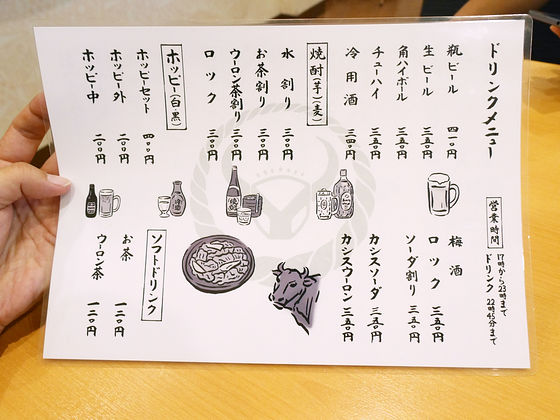 ドリンクメニュー
瓶ビール 四一〇円
生ビール 三五〇円
角ハイボール 三五〇円
チューハイ 三五〇円
冷用酒 三四〇円
焼酎(芋)(麦)
水割り 三〇〇円
お茶割り 三〇〇円
ウーロン茶割り 三〇〇円
ロック 三〇〇円
ホッピー(白・黒)
ホッピーセット 四〇〇円
ホッピー外 二〇〇円
ホッピー中 二〇〇円
営業時間
17時から23時まで
ドリンク 22時45分まで
梅酒
ロック 三五〇円
ソーダ割り 三五〇円
カシスソーダ 三五〇円
カシスウーロン 三五〇円
ソフトドリンク
お茶 一二〇円
ウーロン茶 一二〇円